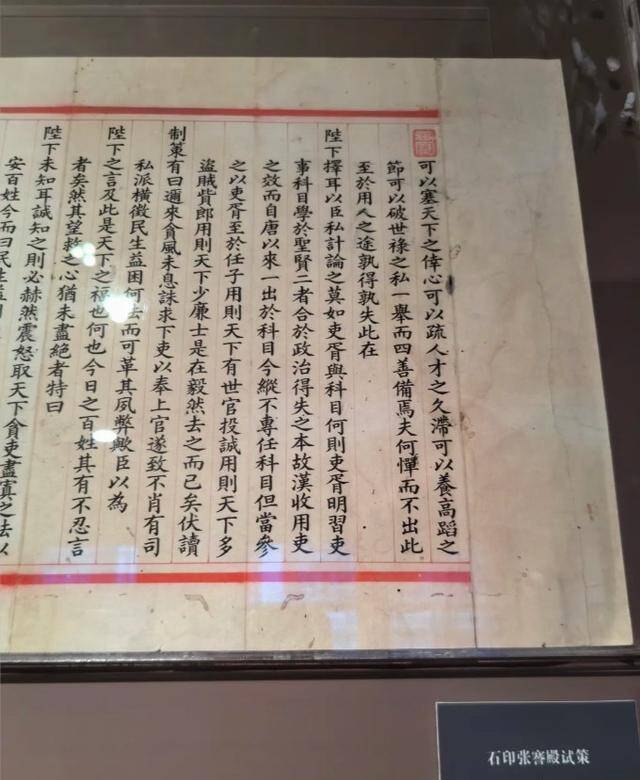 可以塞天下之倖心可以疏人才之久滯可以養高蹈之
節可以破世祿之私一舉而四善備焉夫何憚而不出此
至於用人之途孰得孰失此在
陛下擇耳以臣私計論之莫如吏胥與科目何則吏胥明習吏
事科目學於聖賢二者合於政治得失之本故漢收用吏
之效而自唐以來一出於科目今縱不專任科目但當參
之以吏胥至於任子用則天下有世官投誠用則天下多
盜賊貲郎用則天下少廉士是在毅然去之而已矣伏讀
制策有曰邇來貪風未息誅求下吏以奉上官遂致不肖有司
私派橫徵民生益困何法而可革其夙弊歟臣以為
陛下之言及此是天下之福也何也今日之百姓其有不忍言
者矣然其望救之心猶未盡絕者特曰
陛下未知耳誠知之則必赫然震怒取天下貪吏盡寘之法以
安百姓今而曰民生
石印张謇殿试策